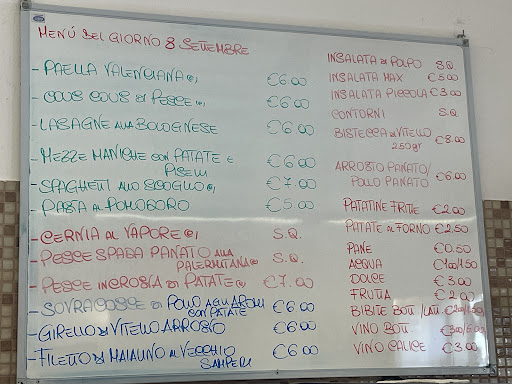 MENÚ DEL GIORNO 8 SETTEMBRE
- PAELLA VALENCIANA (*) €6.00
- COUS COUS DI PESCE (*) €6.00
- LASAGNE ALLA BOLOGNESE €6.00
- MEZZE MANICHE CON PATATE E PISELLI €6.00
- SPAGHETTI ALLO SCOGLIO (*) €7.00
- PASTA AL POMODORO €5.00
- CERNIA AL VAPORE (*) S.Q.
- PESCE SPADA PANATO ALLA PALERMITANA (*) S.Q.
- PESCE IN CROSTA DI PATATE (*) €7.00
- SOVRACOSCE DI POLLO AGLI AROMI CON PATATE €6.00
- GIRELLO DI VITELLO ARROSTO €6.00
- FILETTO DI MAIALINO AL VECCHIO SAMPERI €6.00
INSALATA DI POLPO S.Q.
INSALATA MAX €5.00
INSALATA PICCOLA €3.00
CONTORNI S.Q.
BISTECCA DI VITELLO 250gr €8.00
ARROSTO PANATO/ POLLO PANATO €6.00
PATATINE FRITTE €2.00
PATATE AL FORNO €2.50
PANE €0.50
ACQUA €1.00/1.50
DOLCE €3.00
FRUTTA €2.00
BIBITE BOTT/LATT.
VINO BOTT
VINO CALICE €3.00